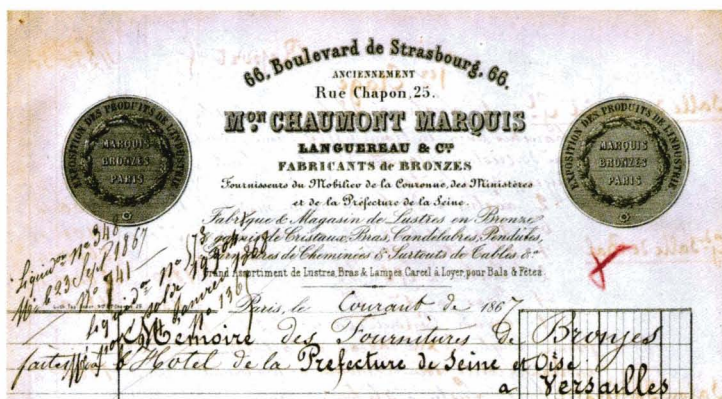 66. Boulevard de Strasbourg, 66.
ANCIENNEMENT
Rue Chapon, 25.
Mon CHAUMONT MARQUIS
LANGUEREAU & Ce
FABRICANTS de BRONZES
Fournisseurs du Mobilier de la Couronne, des Ministères
et de la Préfecture de la Seine.
Fabrique & Magasin de Lustres en Bronze,
de Cristaux, Bras, Candélabres, Pendules,
de Cheminées & Surtouts de Tables &a
Grand Assortiment de Lustres, Bras & Lampes Carcel à Loyer, pour Bals & Fêtes.
EXPOSITION DES PRODUITS DE L'INDUSTRIE
MARQUIS
BRONZES
PARIS
EXPOSITION DES PRODUITS DE L'INDUSTRIE
MARQUIS
BRONZES
PARIS
no 348
23 Sept 1867
No 941
Paris, le Courant de 1867
Memoire des Fournitures de Bronzes
faites à l'Hotel de la Prefecture de Seine et Oise
a Versailles